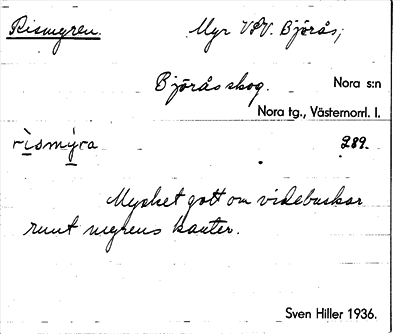 Rismyren.
Myr VSV. Björås,
Björås skog.
Nora s:n
Nora tg., Västernorrl. l.
rismyra
289.
Mycket gott om videbuskar
runt myrens kanter.
Sven Hiller 1936.